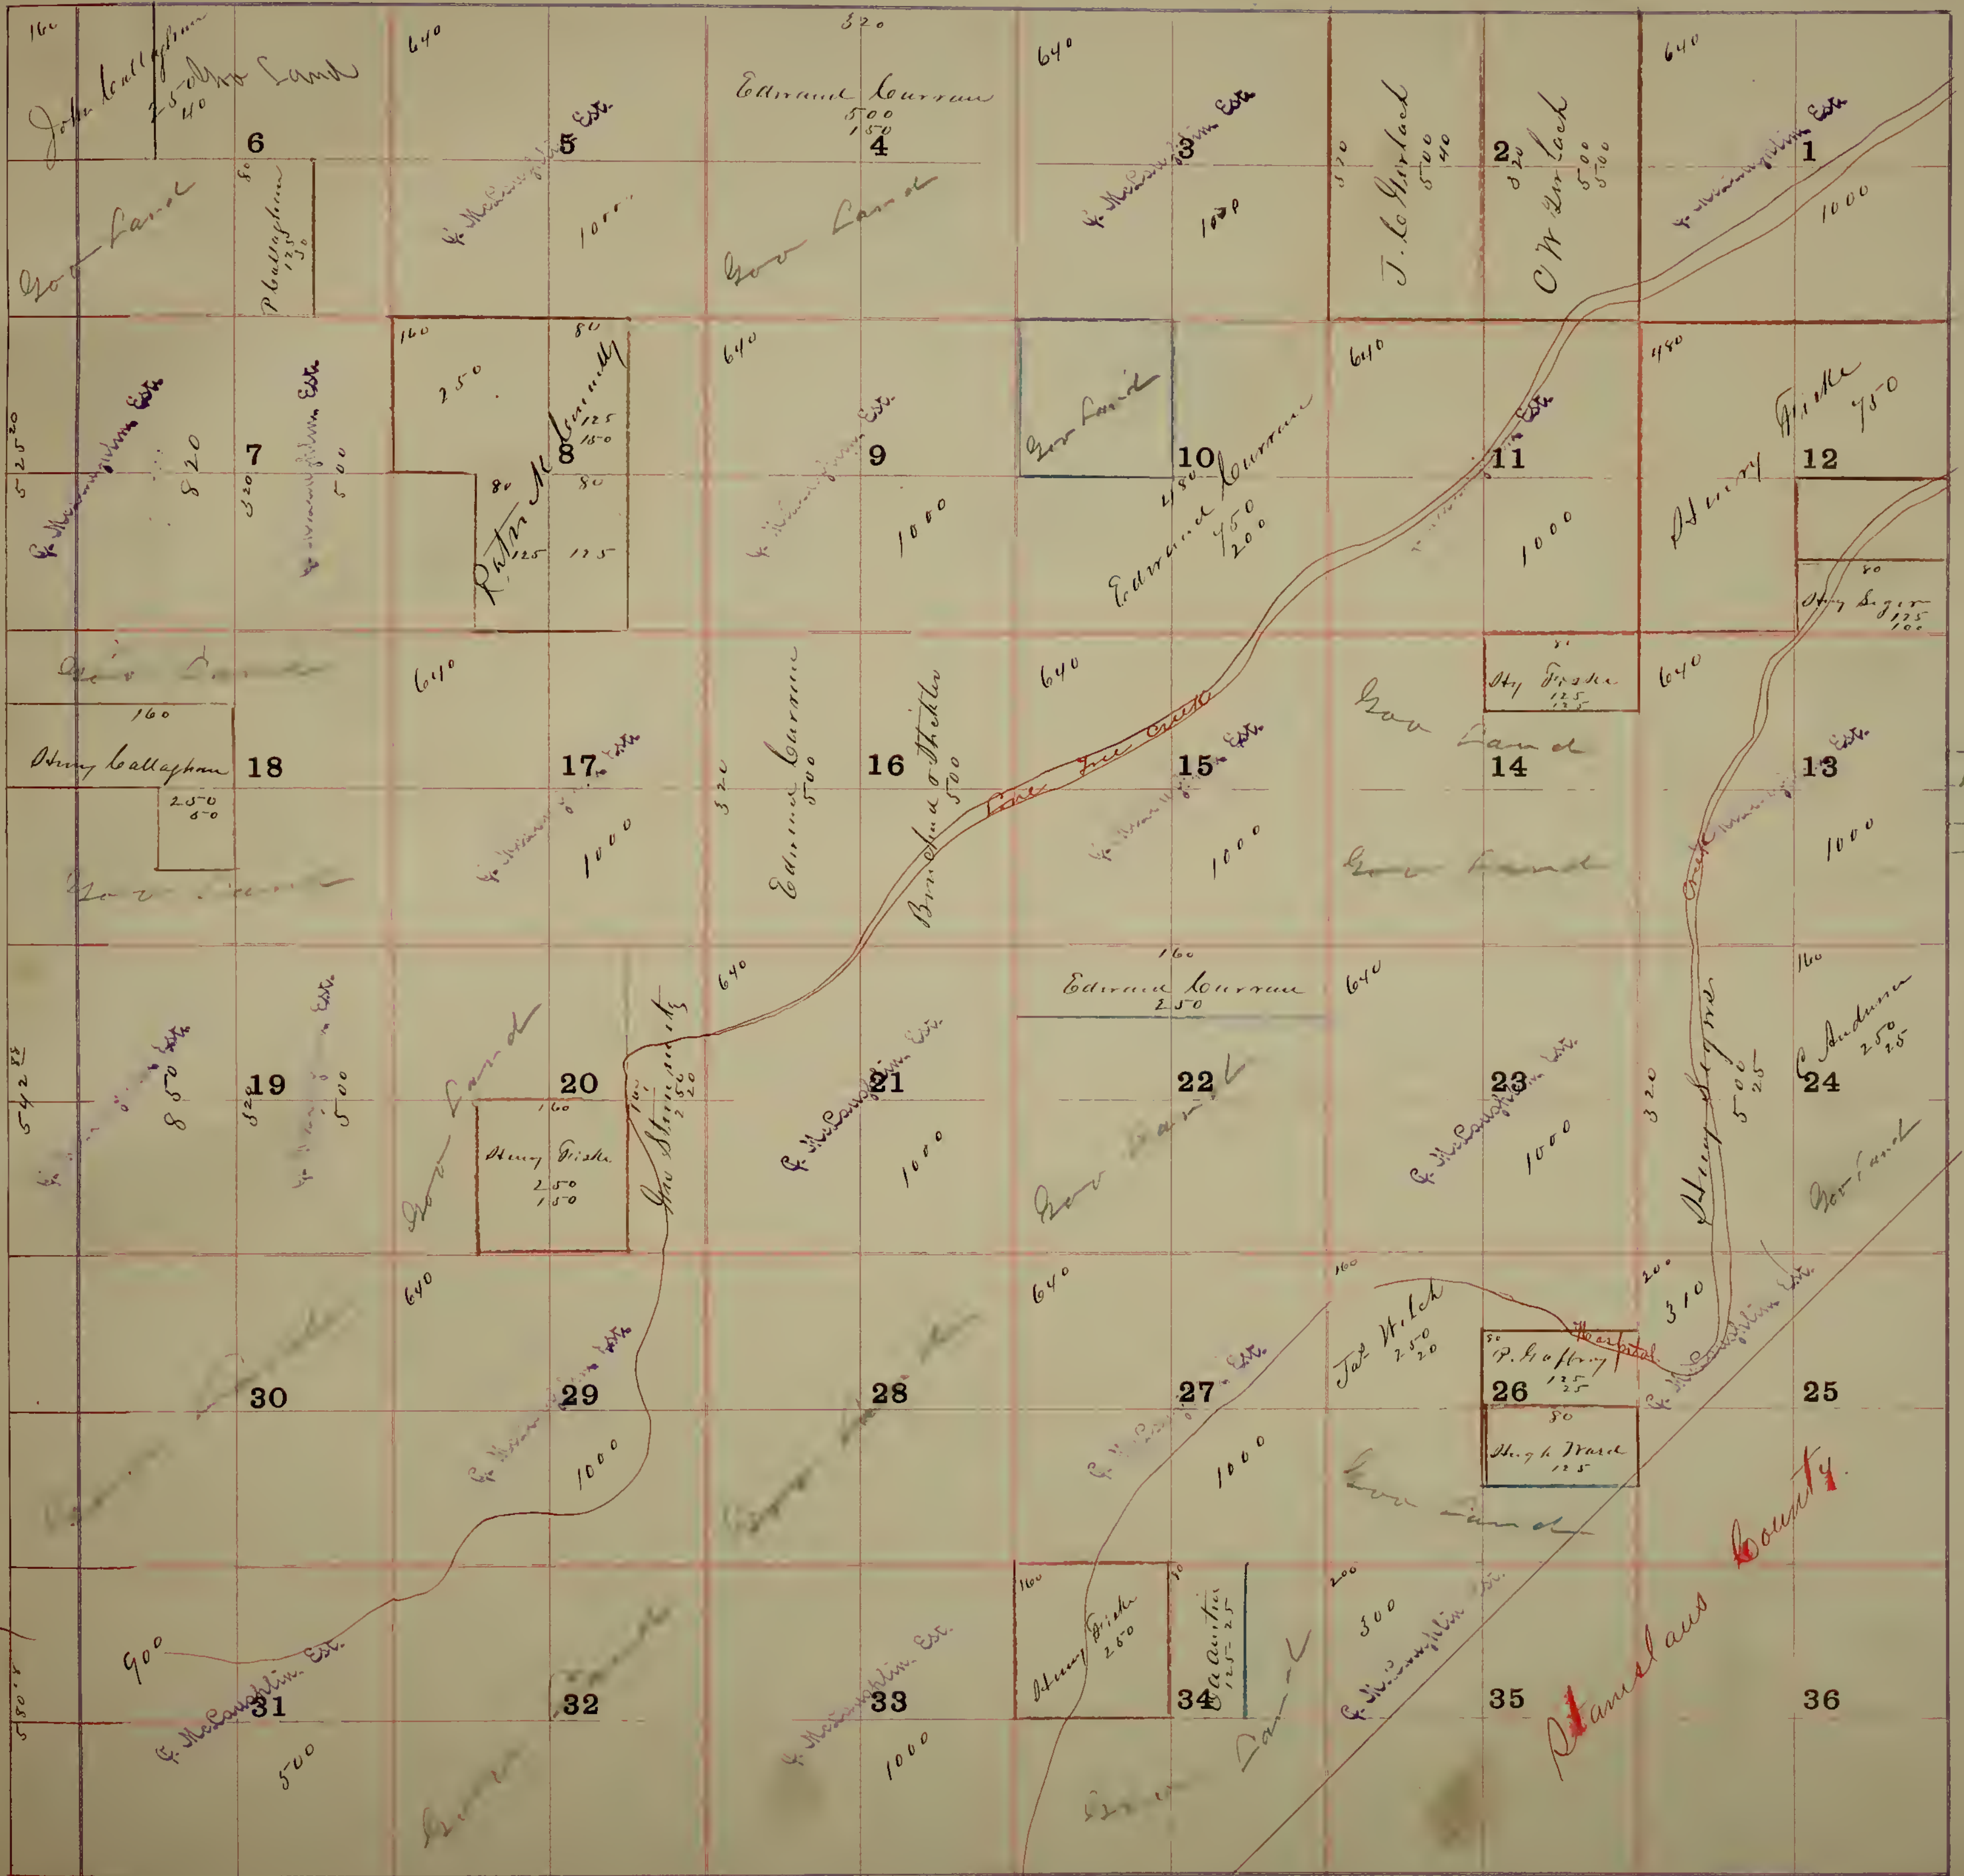 160
John Callaghan
250
40
Gov Land
6
Gov Land
80
P Callaghan
125
50
640
C. McLaughlin Est.
5
1000
320
Edmund Curran
500
150
4
Gov Land
640
C. McLaughlin Est.
3
1000
320
J. C. Gerlach
500
40
2
320
C W Gerlach
500
500
640
C. McLaughlin Est.
1
1000
525 20
C. McLaughlin Est.
820
7
320
C. McLaughlin Est.
500
160
250
80
Patrick Connolly
125
150
8
80
125
80
125
640
C. McLaughlin Est.
9
1000
Gov Land
10
480
Edmund Curran
750
200
640
Est.
11
1000
480
Henry Fiske
750
12
80
Hny Segers
125
100
Gov Land
160
Henry Callaghan
250
50
18
Gov Land
640
C. McLaughlin Est.
17
1000
320
Edmund Curran
500
16
500
Lone Tree Creek
640
C. McLaughlin Est.
15
1000
80
Hy Fiske
125
125
Gov Land
14
Gov Land
640
C. McLaughlin Est.
13
1000
Creek
542 88
850
19
320
C. McLaughlin Est.
500
Gov Land
20
160
Henry Fiske
250
150
160
250
20
640
C. McLaughlin Est.
21
1000
160
Edmund Curran
250
22
Gov Land
640
C. McLaughlin Est.
23
1000
320
Henry Segers
500
25
160
C Anderson
250
25
24
Gov Land
30
640
C. McLaughlin Est.
29
1000
28
640
C. McLaughlin Est.
27
1000
160
Jas Welch
250
20
80
P. Gaffney
125
25
26
80
Hugh Ward
125
Gov Land
Hospital
200
310
C. McLaughlin Est.
25
580
900
C. McLaughlin Est.
31
500
32
Gov Land
C. McLaughlin Est.
33
1000
160
Henry Fiske
250
80
125 25
34
Gov Land
200
300
C. McLaughlin Est.
35
Stanislaus County
36